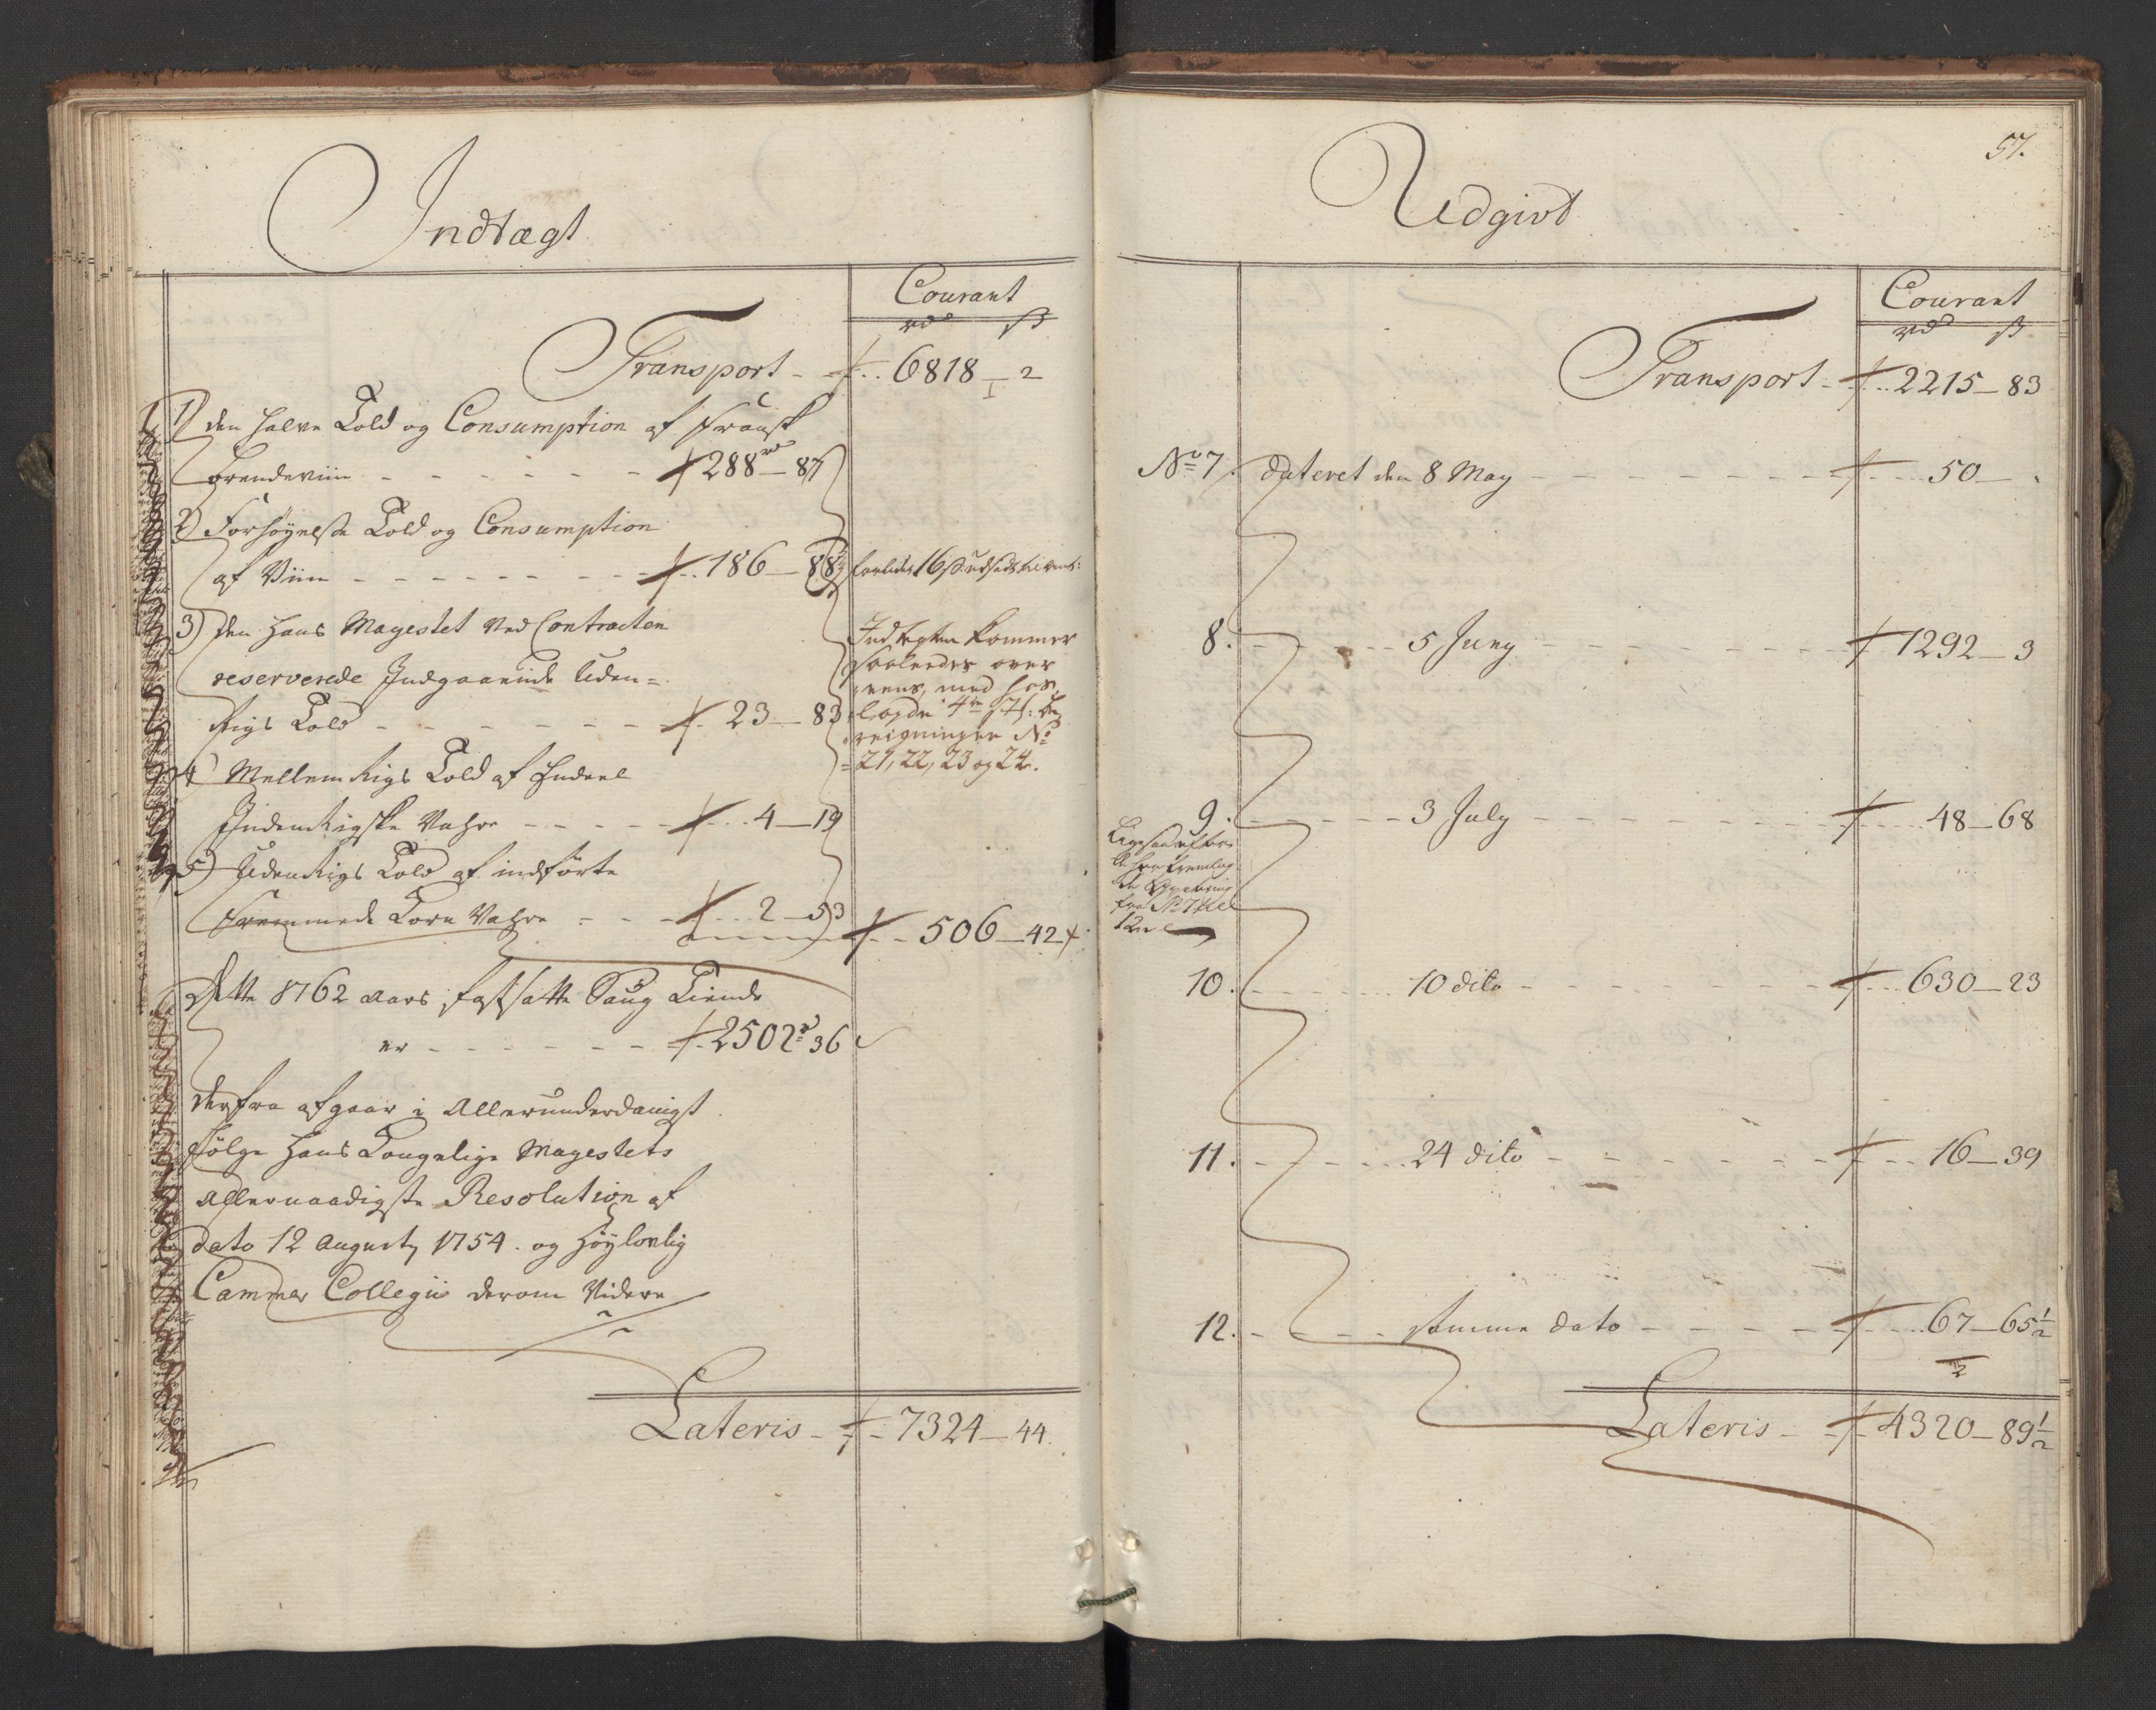 Indtægt
Courant
rd ß
Transport 6818 2
1) den halve Told og Consumption af Fransk
Brendeviin 288 rd 87
2) Forhøyelse Told og Consumption
af Viin 186 88
3) Den Hans Mayestet ved Contracten
reserverede Indgaaende Uden=
Rigs Told 23 83
4) Mellem Rigs Told af Endeel
Indenrigske Vahre 4 19
5) UdenRigs Told af indførte
Fremmede Korn Vahre 2 53
506 42
16 ß
Indtegten kommer
saaledes over
eens, med hos
lagde 4re
reigninger No
21, 22, 23 og 24.
Dette 1762 Aars fastsatte Saug Tiende
er 2502 rd 36
Derfra afgaar i Allerunderdanigst
Følge Hans Kongelige Mayestets
Allernaadigste Resolution af
dato 12 Augusty 1754. og Høylovlig
Cammer Collegii derom Videre
Lateris 7324 44
57.
Udgivt
Courant
rd ß
Transport 2215 83
No 7. dateret den 8 May 50
8. 5 Juny 1292 3
9. 3 July 48 68
fra No 7 til
12
10. 10 dito 630 23
11. 24 dito 16 39
12. samme dato 67 65½
Lateris 4320 89½